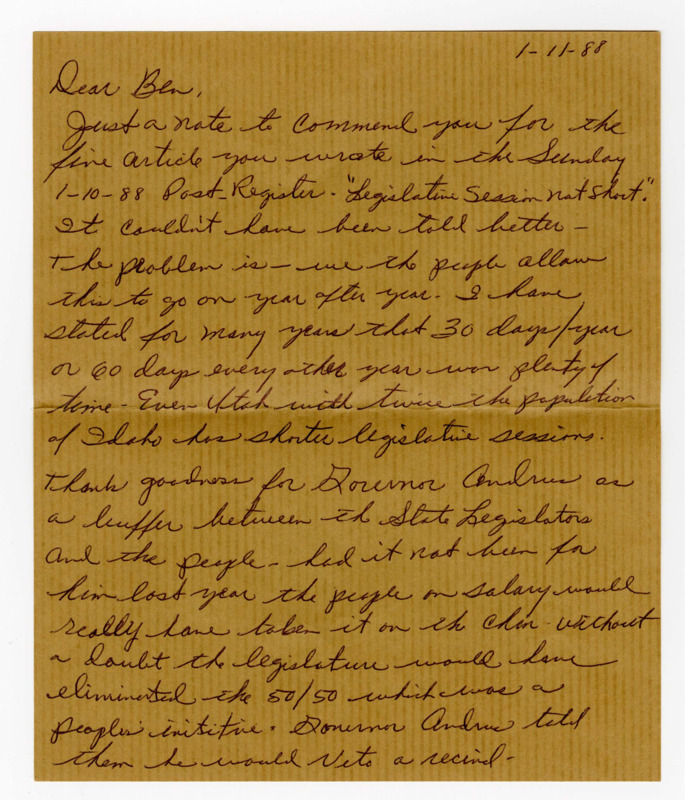 1-11-88
Dear Ben,
Just a note to commend you for the
fine article you wrote in the Sunday
1-10-88 Post-Register - "Legislative Session not Short".
It couldn't have been told better -
The problem is - we the people allow
this to go on year after year. I have
stated for many years that 30 days/year
or 60 days every other year was plenty of
time - Even Utah with twice the population
of Idaho has shorter legislative sessions.
Thank goodness for Governor Andrus as
a buffer between th State Legislators
and the people - had it not been for
him last year the people on salary would
really have taken it on th chin - without
a doubt the legislature would have
eliminated the 50/50 which was a
peoples inititive. Governor Andrus told
them he would Veto a recind -